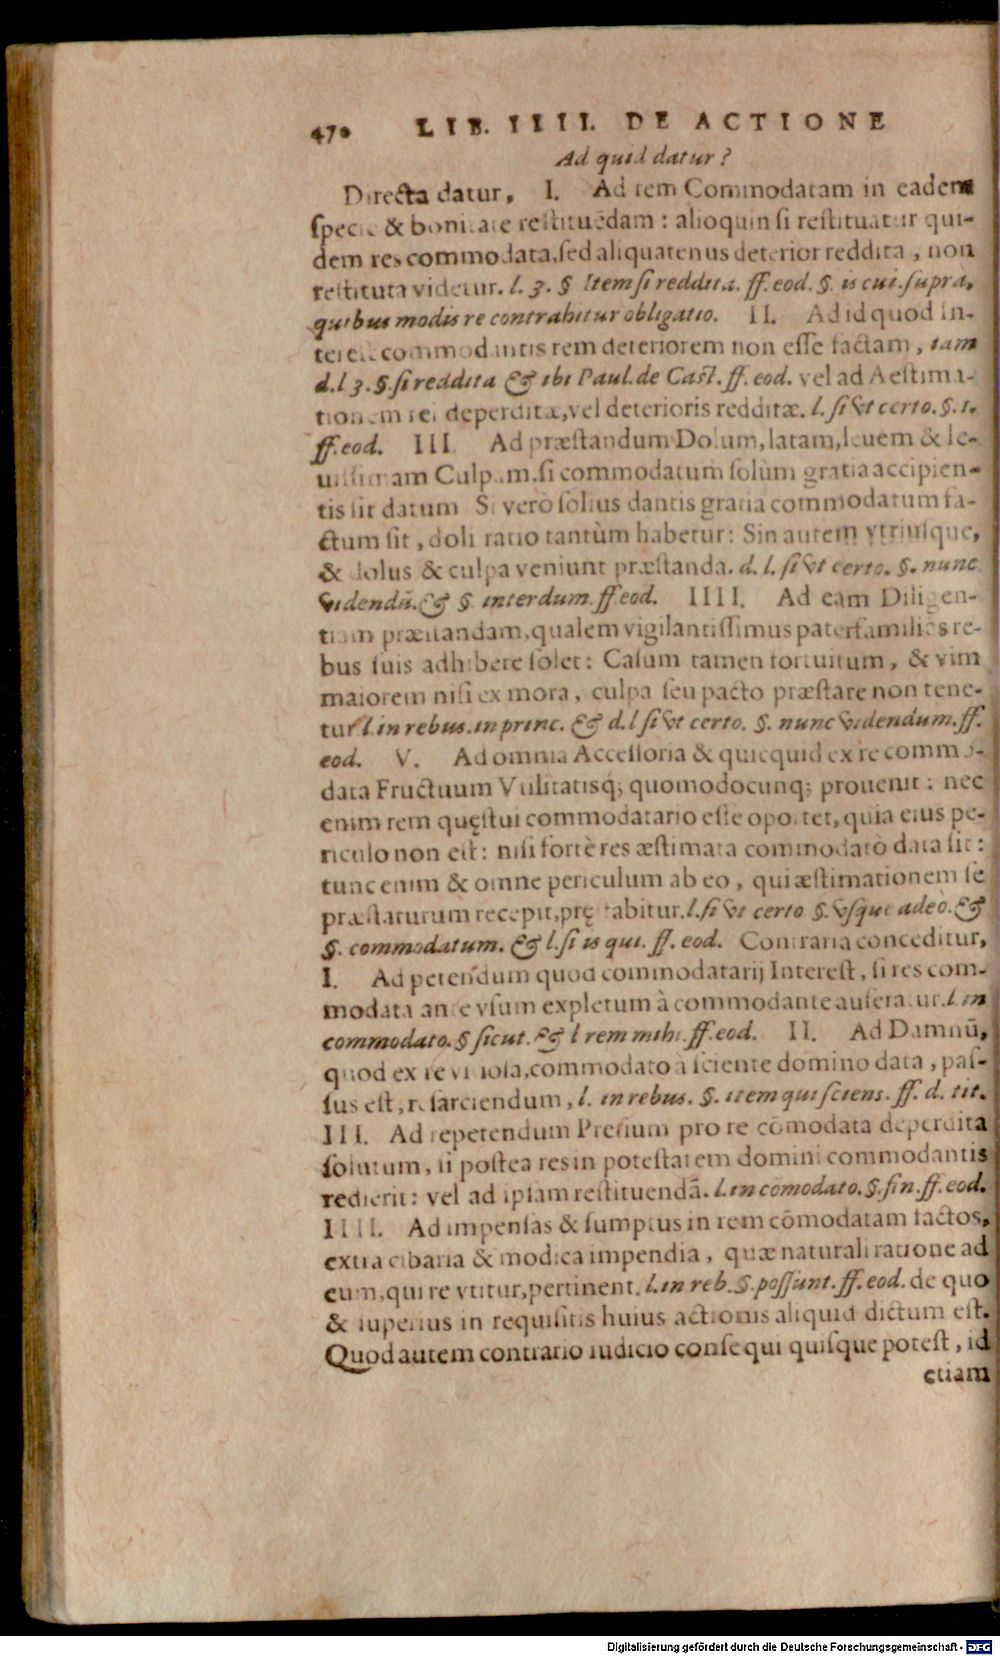 470 LIB. IIII. DE ACTIONE
Ad quid datur?
Directa datur, I. Ad rem Commodatam in eadem
specie & bonitate restituēdam : alioquin si restituatur qui-
dem res commodata, sed aliquatenus deterior reddita, non
restituta videtur. l. 3. § Item si reddita. ff. eod. §. is cui. suprà,
quibus modis re contrahitur obligatio. II. Ad id quod in-
terest commodantis rem deteriorem non esse factam, tam
d. l 3. §. si reddita & ibi Paul. de Cast. ff. eod. vel ad Aestima-
tionem rei deperditæ, vel deterioris redditæ. l. si vt certo. §. 1.
ff. eod. III Ad præstandum Dolum, latam, leuem & le-
uissimam Culpam, si commodatum solùm gratia accipien-
tis sit datum Si verò solius dantis gratia commodatum fa-
ctum sit, doli ratio tantùm habetur: Sin autem vtriusque,
& dolus & culpa veniunt præstanda. d. l. si vt certo. §. nunc
videndū. & § interdum. ff. eod. IIII. Ad eam Diligen-
tiam præstandam, qualem vigilantissimus paterfamilias re-
bus suis adhibere solet: Casum tamen fortuitum, & vim
maiorem nisi ex mora, culpa seu pacto præstare non tene-
tur l. in rebus. in princ. & d. l si vt certo. §. nunc videndum. ff.
eod. V. Ad omnia Accessoria & quicquid ex re commo-
data Fructuum Vtilitatisq; quomodocunq; prouenit : nec
enim rem quęstui commodatario esse oportet, quia eius pe-
riculo non est: nisi fortè res æstimata commodatò data sit :
tunc enim & omne periculum ab eo, qui æstimationem se
præstaturum recepit, pręstabitur. l. si vt certo §. vsque adeò. &
§. commodatum. & l. si is qui. ff. eod. Contraria conceditur,
I. Ad petendum quod commodatarij Interest, si res com-
modata ante vsum expletum à commodante auferatur. l. in
commodato. § sicut. & l rem mihi. ff. eod. II. Ad Damnū,
quod ex re vitiosa, commodato à sciente domino data, pas-
sus est, resarciendum, l. in rebus. §. item qui sciens. ff. d. tit.
III. Ad repetendum Pretium pro re cōmodata deperdita
solutum, si postea res in potestatem domini commodantis
redierit: vel ad ipsam restituendā. l. in cōmodato. §. fin. ff. eod.
IIII. Ad impensas & sumptus in rem cōmodatam factos,
extra cibaria & modica impendia, quæ naturali ratione ad
eum, qui re vtitur, pertinent. l. in reb. §. possunt. ff. eod. de quo
& superius in requisitis huius actionis aliquid dictum est.
Quod autem contrario iudicio consequi quisque potest, id
etiam
Digitalisierung gefördert durch die Deutsche Forschungsgemeinschaft - DFG